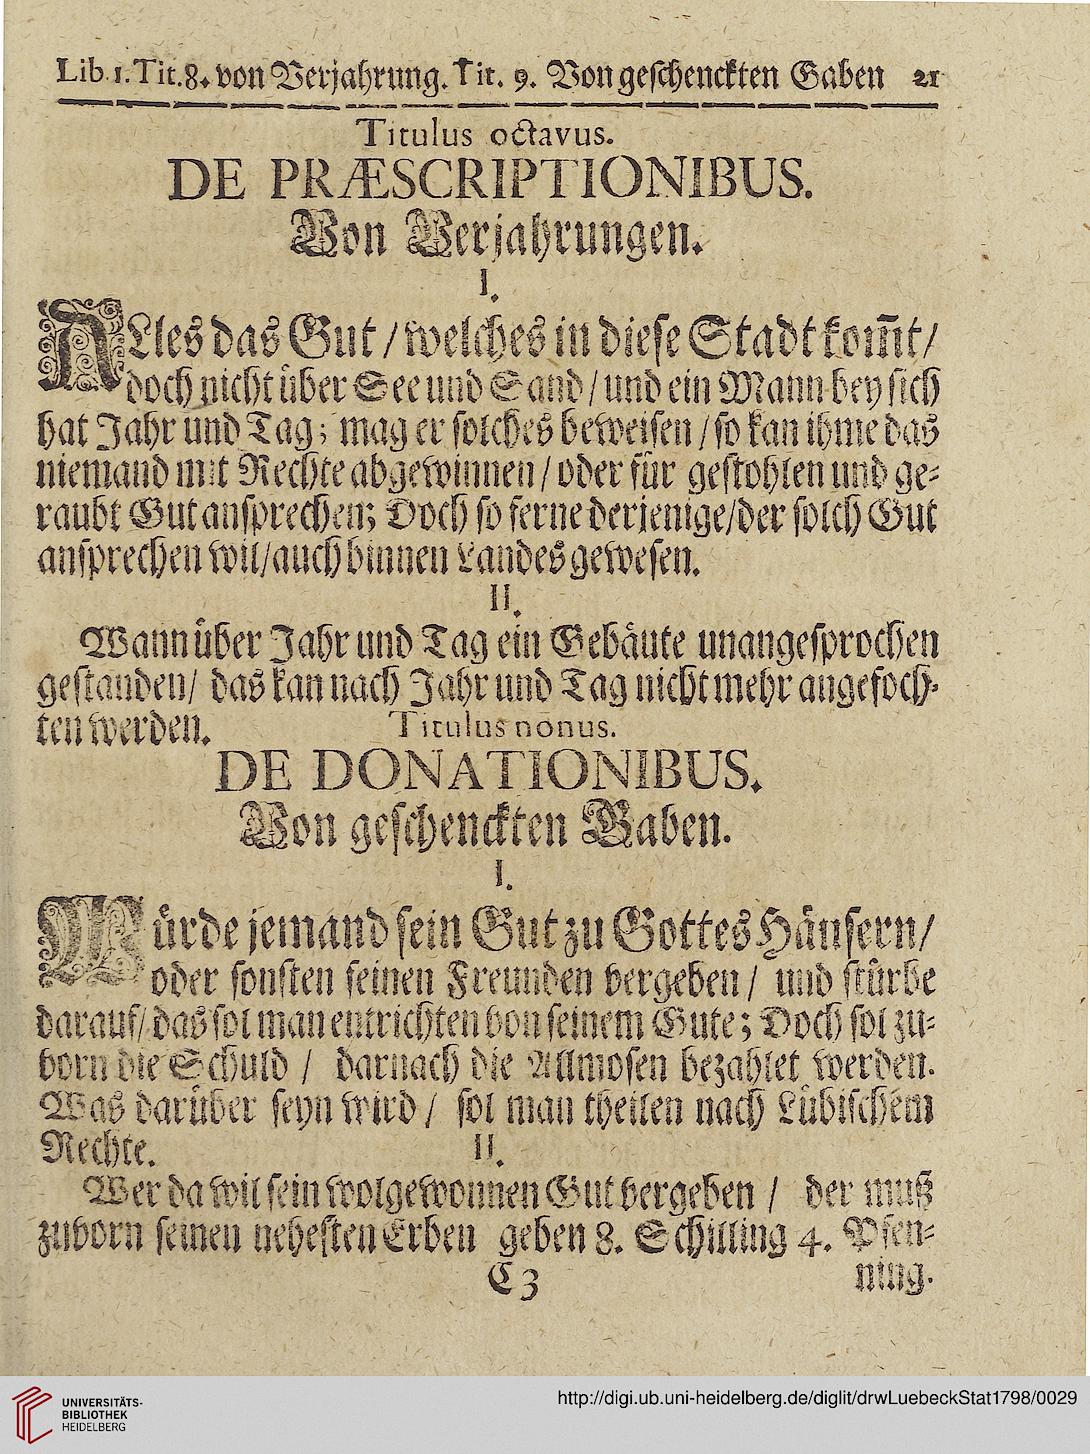 Lib. 1. Tit. 8. von Verjahrung. Tit. 9. Von geschenckten Gaben 21
Titulus octavus.
DE PRÆSCRIPTIONIBUS.
Von Verjahrungen.
I.
ALles das Gut / welches in diese Stadt kom̄t /
doch nicht über See und Sand / und ein Mann bey sich
hat Jahr und Tag; mag er solches beweisen / so kan ihme das
niemand mit Rechte abgewinnen / oder für gestohlen und ge-
raubt Gut ansprechen; Doch so ferne derjenige/der solch Gut
ansprechen wil/auch binnen Landes gewesen.
II.
Wann über Jahr und Tag ein Gebäute unangesprochen
gestanden/ das kan nach Jahr und Tag nicht mehr angefoch-
ten werden.
Titulus nonus.
DE DONATIONIBUS.
Von geschenckten Gaben.
I.
Würde jemand sein Gut zu Gottes Häusern /
oder sonsten seinen Freunden vergeben / und stürbe
darauf/ das sol man entrichten von seinem Gute; Doch sol zu-
vorn die Schuld / darnach die Allmosen bezahlet werden.
Was darüber seyn wird / sol man theilen nach Lübischem
Rechte.
II.
Wer da wil sein wolgewonnen Gut vergeben / der muß
zuvorn seinen nehesten Erben geben 8. Schilling 4. Pfen-
C 3 ning.
UNIVERSITÄTS-
BIBLIOTHEK
HEIDELBERG
http://digi.ub.uni-heidelberg.de/diglit/drwLuebeckStat1798/0029